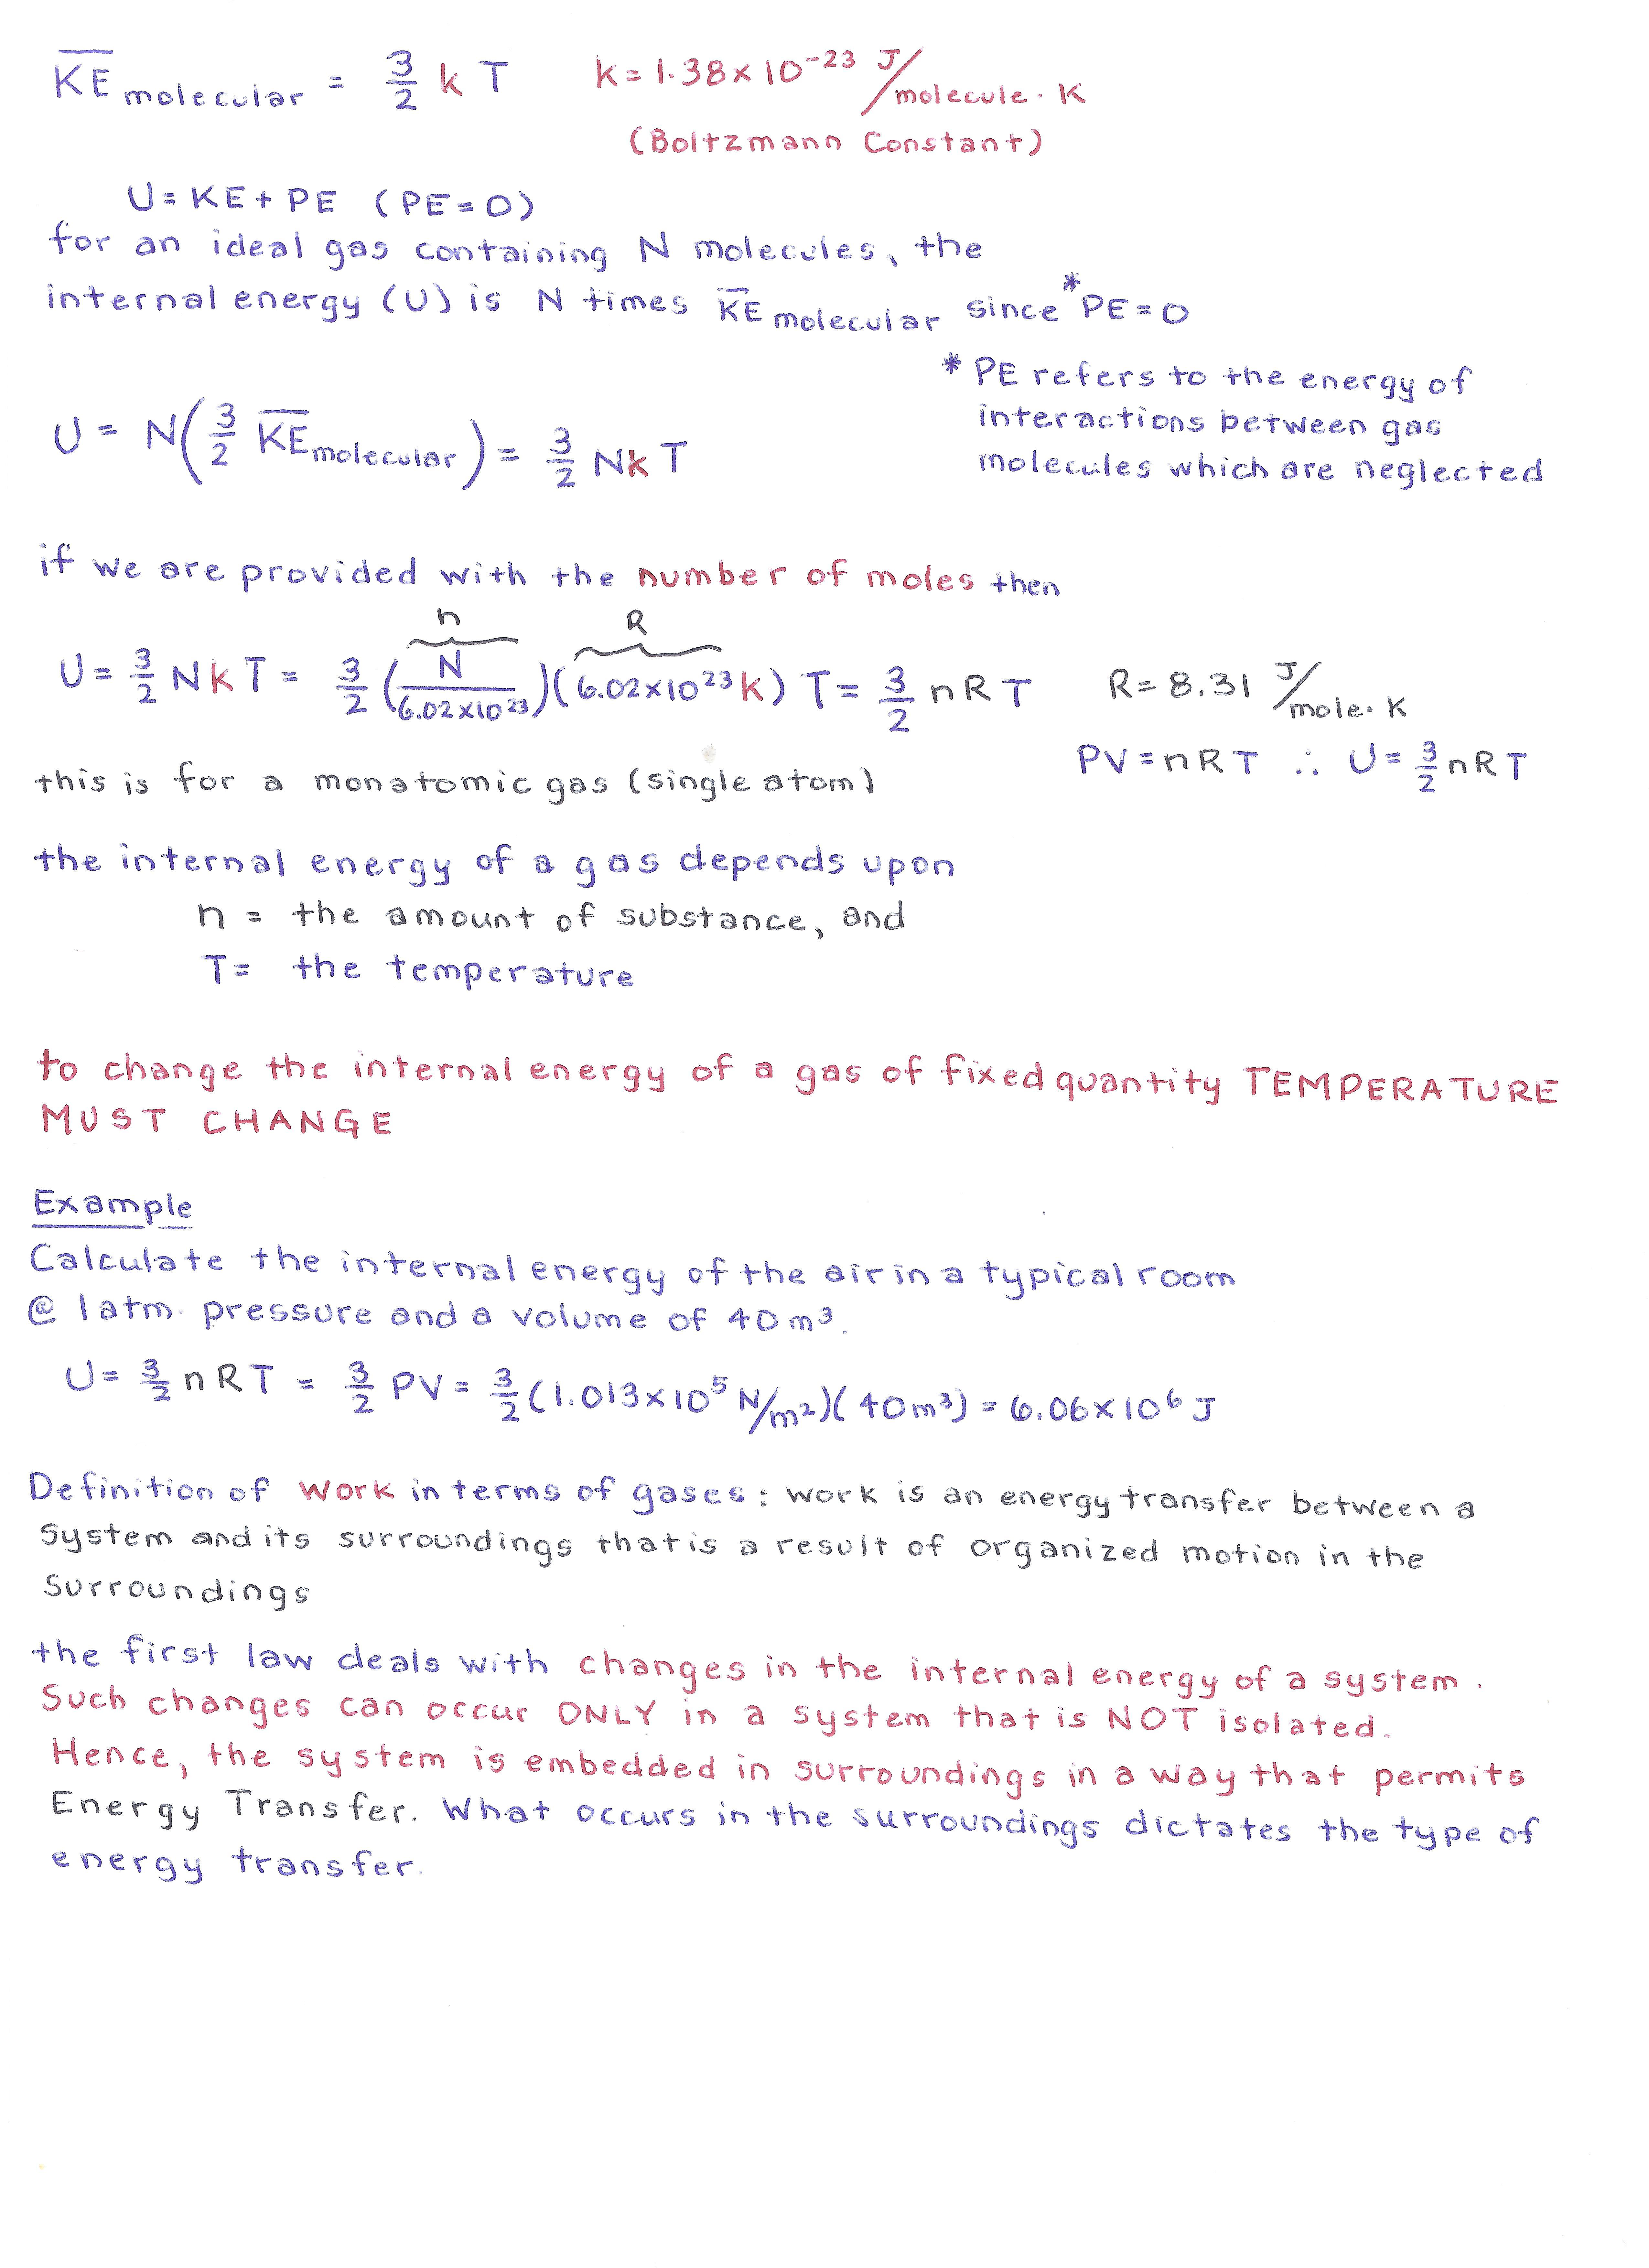 K̅E̅ molecular = 3/2 k T    k = 1.38 x 10⁻²³ J/molecule · K
(Boltzmann Constant)
U = KE + PE (PE = 0)
for an ideal gas containing N molecules, the
internal energy (U) is N times K̅E̅ molecular since *PE = 0
* PE refers to the energy of
interactions between gas
molecules which are neglected
U = N(3/2 K̅E̅ molecular) = 3/2 NkT
if we are provided with the number of moles then
n    R
U = 3/2 NkT = 3/2 (N/6.02x10²³)(6.02x10²³ k) T = 3/2 nRT    R = 8.31 J/mole · K
PV = nRT ∴ U = 3/2 nRT
this is for a monatomic gas (single atom)
the internal energy of a gas depends upon
n = the amount of substance, and
T = the temperature
to change the internal energy of a gas of fixed quantity TEMPERATURE
MUST CHANGE
Example
Calculate the internal energy of the air in a typical room
@ 1 atm. pressure and a volume of 40 m³.
U = 3/2 nRT = 3/2 PV = 3/2 (1.013x10⁵ N/m²)(40m³) = 6.06x10⁶ J
Definition of work in terms of gases: work is an energy transfer between a
system and its surroundings that is a result of organized motion in the
surroundings
the first law deals with changes in the internal energy of a system.
Such changes can occur ONLY in a system that is NOT isolated.
Hence, the system is embedded in surroundings in a way that permits
Energy Transfer. What occurs in the surroundings dictates the type of
energy transfer.